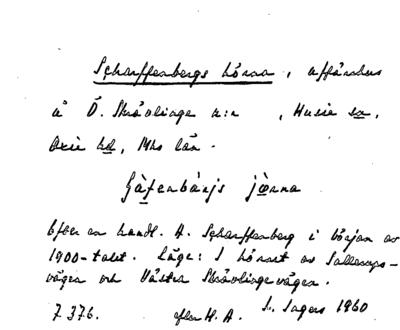 Scharffenbergs hörna, affärshus
å Ö. Skrävlinge n:r , Husie sn,
Oxie hd, Mhs län.
jæ̀rna
Efter en handl. A. Scharffenberg i början av
1900-talet. Läge: I hörnet av Sallerups-
vägen och Västra Skrävlingevägen.
7376. efter H. A. S. Ingers 1960